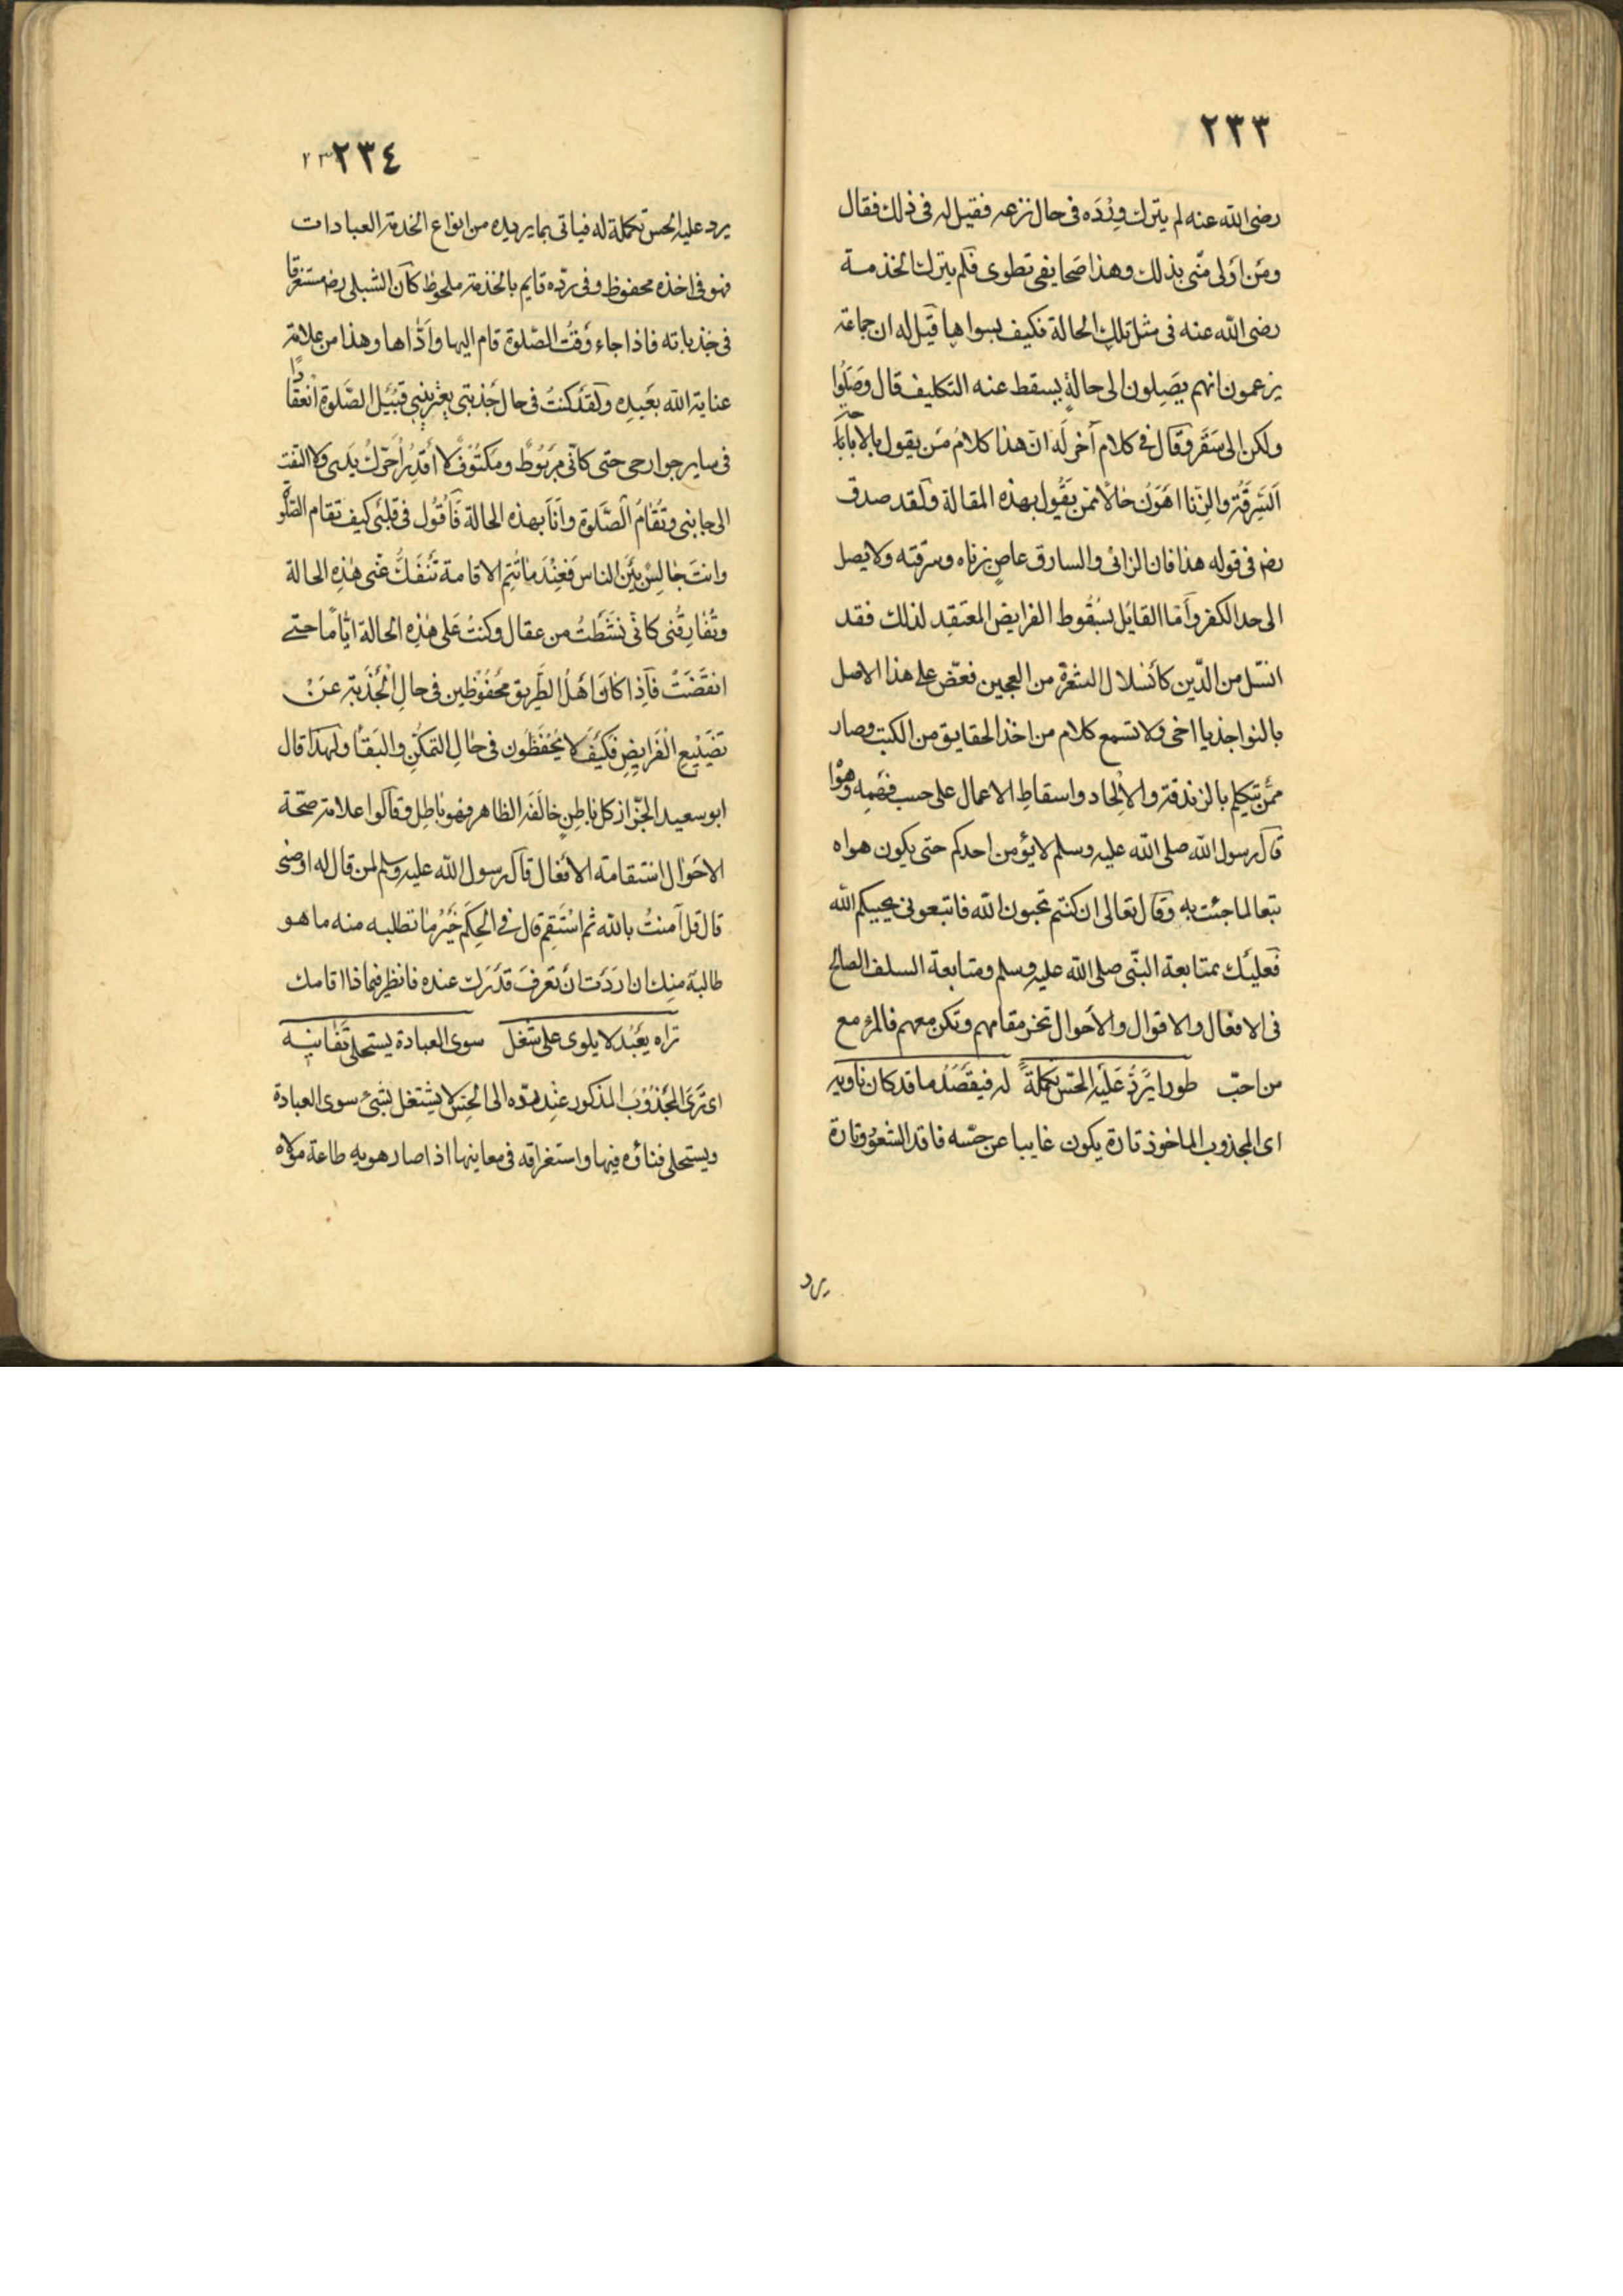 ٢٣٣
رضى الله عنه لم يترك وِرْدَه فى حال نزعه فقيل له فى ذلك فقال
ومَن اَولى منّى بذلك وهذا صَحايفى تطوى فلَم يترك الخدمة
رضى الله عنه فى مثل تلك الحالة فكيف بسواها قيل له ان جماعة
يزعمون انهم يصَلِون الى حالةٍ يسقط عنه التكليف قال وَصَلُوا
ولكن الى سَقَر وقال فى كلام آخر لَه انّ هذا كلامُ مَن يقول بالاباحة
اَلسَرِقَةُ والزِّنا اهَوَنُ حالاً ممن يَقُول بهذه المقالة ولَقد صدق
رضى فى قوله هذا فان الزانى والسارق عاصٍ بزناه وسرقته ولا يصل
الى حد الكفر وأما القايل بسُقُوط الفرايض المعَتقِد لذلك فقد
انسّل من الدّين كأنسلال الشعرة من العجين فعَضّ على هذا الاصل
بالنواجذ يا اخى ولا تسمع كلام من اخذ الحقايق من الكتب وصار
ممّن يتكلم بالزندقة والاِلحاد واسقاطِ الاعمال على حسب فهَمِه وهَوْا
قال رسول الله صلى الله عليه وسلم لا يؤمن احدكم حتى يكون هواه
تبعا لما جئت به وقال تعالى ان كنتم تحبون الله فاتبعونى يحببكم الله
فَعليَك بمتابعة النبّى صلى الله عليه وسلم ومتابعة السلف الصالح
فى الافعال والاقوال والاَحوال تحز مقامهم وتكن معهم فالمرؤ مع
من احبّ طورا يَرُدُّ عَلَيْه الحسّ تكملةً له فيقَصَدُ ما قد كان ناويه
اى المجذوب الماخوذ تارة يكون غايبا عن حسّه فاقد الشعوُر وتارة
يرد
٢٣٤
يرد عليه الحس تكملة له فياتى بما يريده من انواع الخدمة العبادات
فهو فى اخذه محفوظ وفى ردّه قايم بالخدمة ملحوظ كان الشبلى رضى مستغرقا
فى جَذباته فاذا جاء وَقتُ الصّلوة قام اليها وأدّاها وهذا من علامة
عناية الله بعَبِيدِه ولَقَد كنتُ فى حال جَذبتى يعْتَرينِى قبُيَل الصَّلوة انعقادًا
فى ساير جوارحى حتى كانّى مَربُوطٌ ومَكتُوفٌ لا أقدِرُ أُحَرّك يَدَى ولا التفت
الى جابنى وتُقامُ الصَّلوة وأنَا بهذه الحالة فَأَقُول فى قلبَى كيف تقام الصلوة
وانتَ جالِسٌ بَيْن الناس فَعِنْدَ ماتُتِم الاقامة تَنْفَكُّ عَنّى هٰذِهِ الحالة
وتُفٰارِقُنى كانّى نشَطتُ من عقال وكنتُ عَلى هٰذِهِ الحالة أيّاماً حتى
انقَضَتْ فاِذا كانَ اَهْلُ الطَّرِيق مَحْفُوْظين فى حالِ الْجَذبَة عَنْ
تَضْيِيع الْفَرايِضِ فَكَيفَ لا يُحْفَظُون فى حٰالِ التّمَكّنِ والبَقٰا ولهذا قال
ابو سعيد الخرّاز كل باطِنٍ خالَفَه الظاهر فهو باطِل وقالُوا علامة صحّة
الاحَوٰال استقامة الافعٰال قال رسول الله عليه وسلم لمن قال له اوصنى
قال قل آمنتُ بالله ثم اسْتَقِم قال فى الحِكَم خَيْرُ مٰا تطلبه منه ما هو
طالبَه منِك ان اردَت أن تَعرفَ قدَرَك عنده فانظر فيماذا اقامك
تراه يعَبْد لا يلوى على شغل سوى العبادة يستحلى تَفانيه
اى تَرَى المَجْذُوْبَ المذكور عنِد ردّه الى الحِسِ لا يشتغل بشئ سوى العبادة
ويستحلى فناؤه فيها واستغراقه فى معاينها اذا صار هويه طاعة مولاه